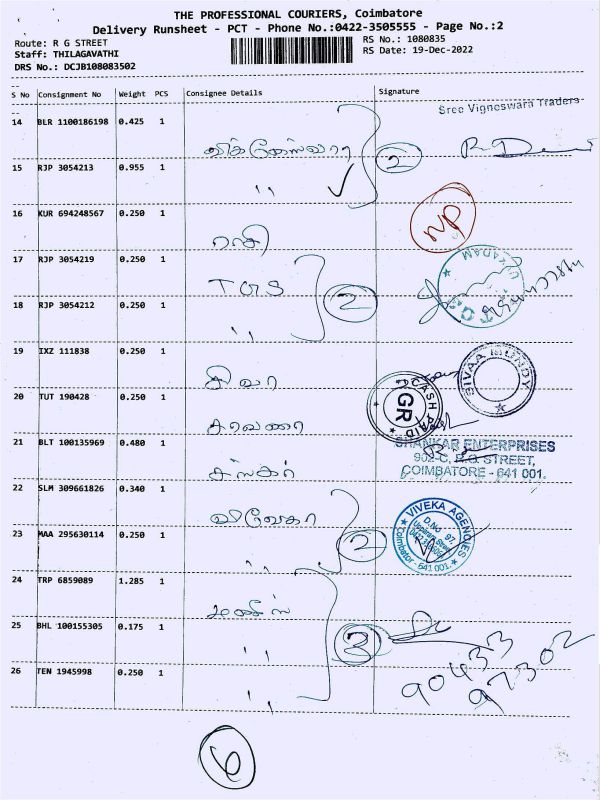 THE PROFESSIONAL COURIERS, Coimbatore
Delivery Runsheet - PCT - Phone No.:0422-3505555 - Page No.:2
Route: R G STREET
RS No.: 1080835
Staff: THILAGAVATHI
RS Date: 19-Dec-2022
DRS No.: DCJB108083502
S No Consignment No Weight PCS Consignee Details Signature
Sree Vigneswara Traders
14 BLR 1100186198 0.425 1
விக்னேஸ்வரா 2
15 RJP 3054213 0.955 1
,,
16 KUR 694248567 0.250 1
ராசி
17 RJP 3054219 0.250 1
TGS 2
18 RJP 3054212 0.250 1
,,
19 IXZ 111838 0.250 1
சிவா SIVAA MUNDY
20 TUT 190428 0.250 1
சரவணா GR CASH PAID
21 BLT 100135969 0.480 1
SHANKAR ENTERPRISES
902-C, R.G. STREET,
COIMBATORE - 641 001.
22 SLM 309661826 0.340 1
விவேகா
VIVEKA AGENCIES
D.No 97,
Coimbator - 641 001.
23 MAA 295630114 0.250 1
,, 2
24 TRP 6859089 1.285 1
25 BHL 100155305 0.175 1
,, 3
26 TEN 1945998 0.250 1
,,
90433
97302
6